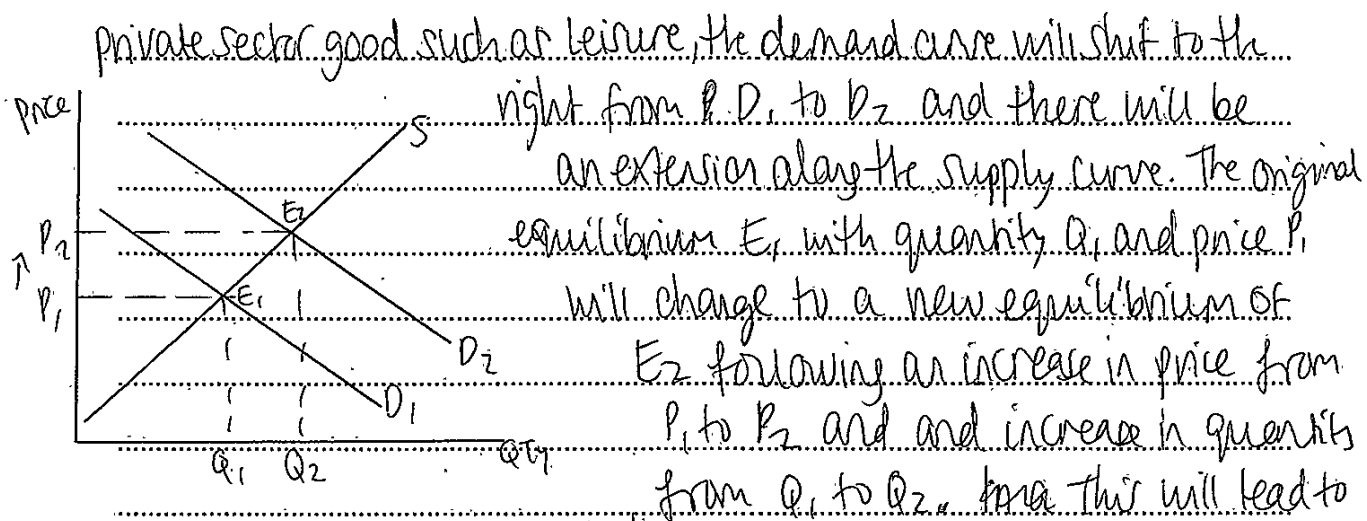 private sector good such as leisure, the demand curve will shift to the
right from P D1 to D2 and there will be
an extension along the supply curve. The original
equilibrium E1 with quantity Q1 and price P1
will change to a new equilibrium of
E2 following an increase in price from
P1 to P2 and and increase in quantity
from Q1 to Q2. This will lead to
Price
S
E2
P2
↑
P1
E1
D2
D1
Q1 Q2
QTY